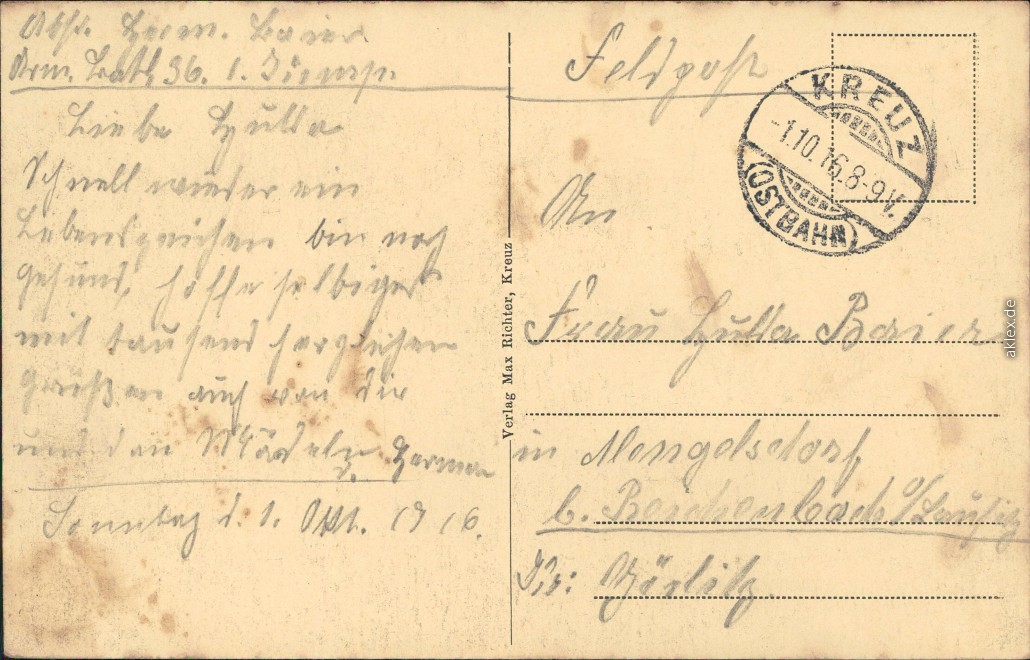 Abs. Herm. Baier
Arm. Batl. 36. 1. Komp.
Liebe Hulda
Schnell wieder ein
Lebenszeichen bin noch
gesund, hoffe selbiges
mit tausend herzlichen
Grüßen auch von dir
und den Mädeln d. Herman
Sonntag d. 1. Okt. 1916.
Verlag Max Richter, Kreuz
Feldpost
KREUZ
-1.10.16.8-9V.
(OSTBAHN)
An
Frau Hulda Baier
in Mengelsdorf
b. Reichenbach o/Lausitz
Kr: Görlitz
aklex.de